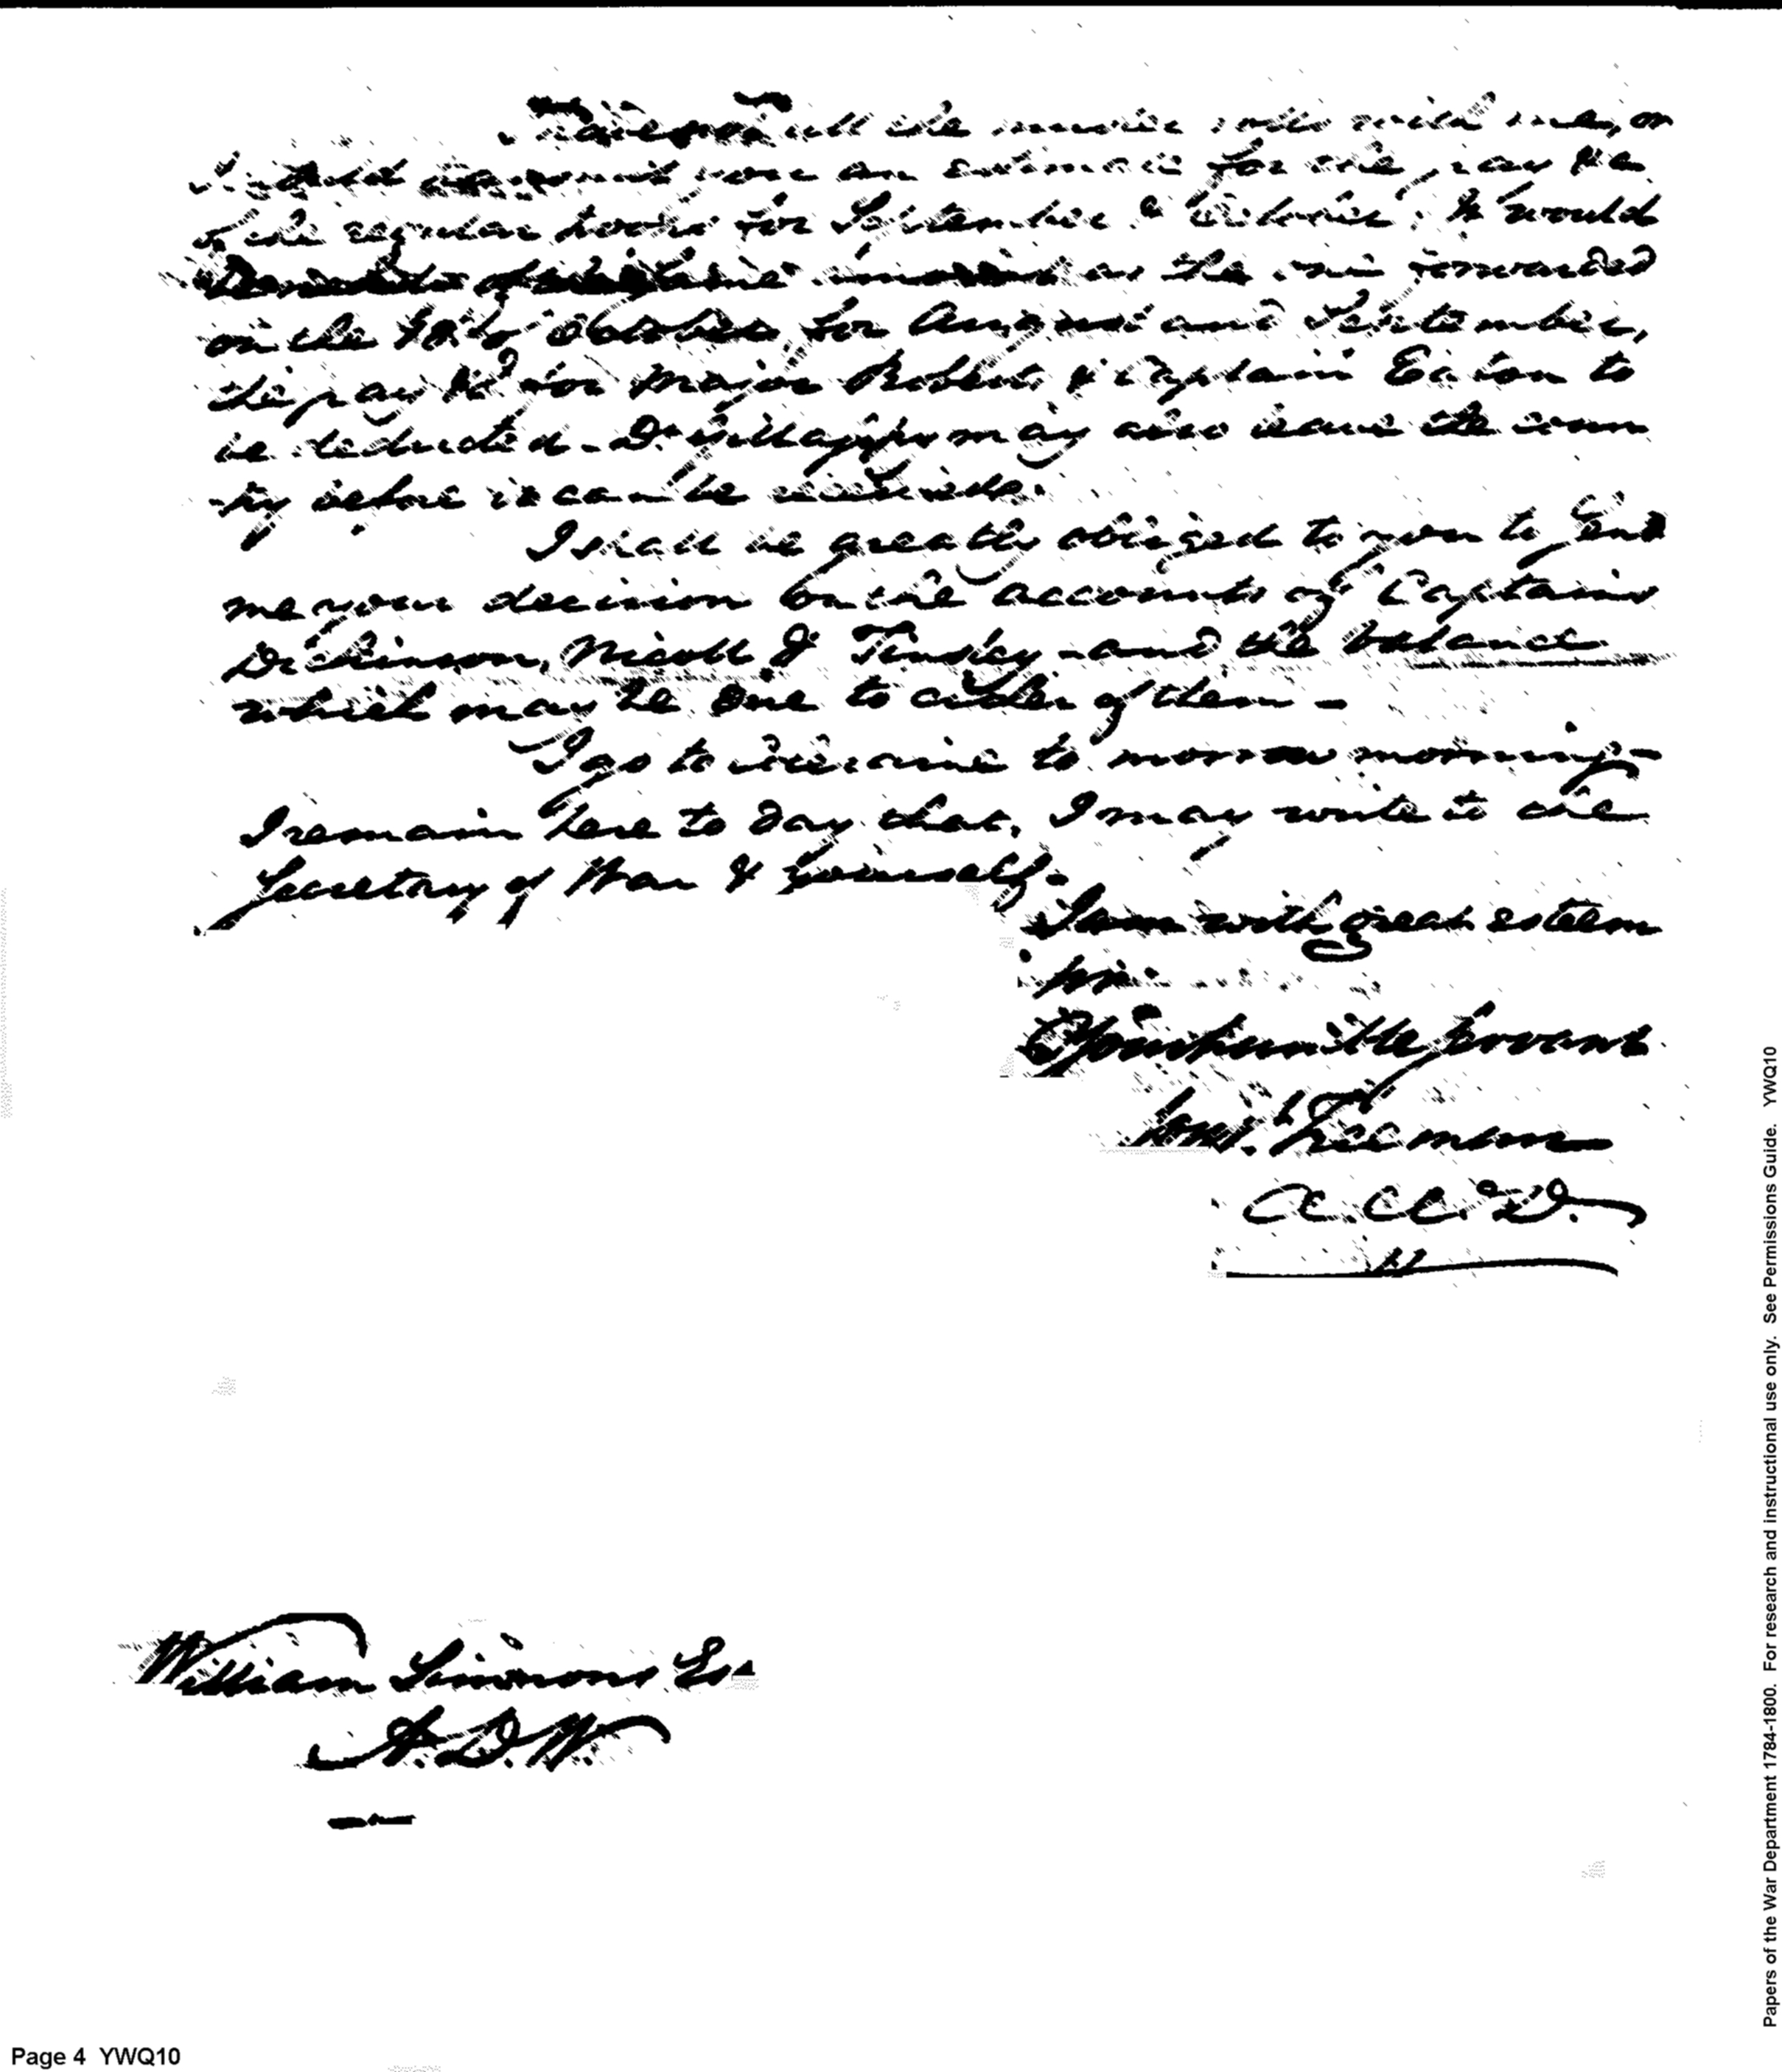 I have not all the muster rolls with me, or
I would transmit you an estimate for the pay &c
of the regular troops for September & October. It would
be the same as the one forwarded
on the 10th October for August and September,
the pay &c for Major Roberts & Captain Eaton to
be deducted. Dr Gillaspy may also leave the coun
try before it can be received.
I shall be greatly obliged to you to send
me your decision on the accounts of Captains
Dickinson, Nicoll & Tinsley - and the balance
which may be due to either of them -
I go to Coleraine to morrow morning -
I remain here to day that, I may write to the
Secretary of War & yourself.
I am with great esteem
Sir
Your humble servant
Const. Freeman
A. C. W. D.
William Simmons Esq
A. D. W.
Papers of the War Department 1784-1800. For research and instructional use only. See Permissions Guide. YWQ10
Page 4 YWQ10